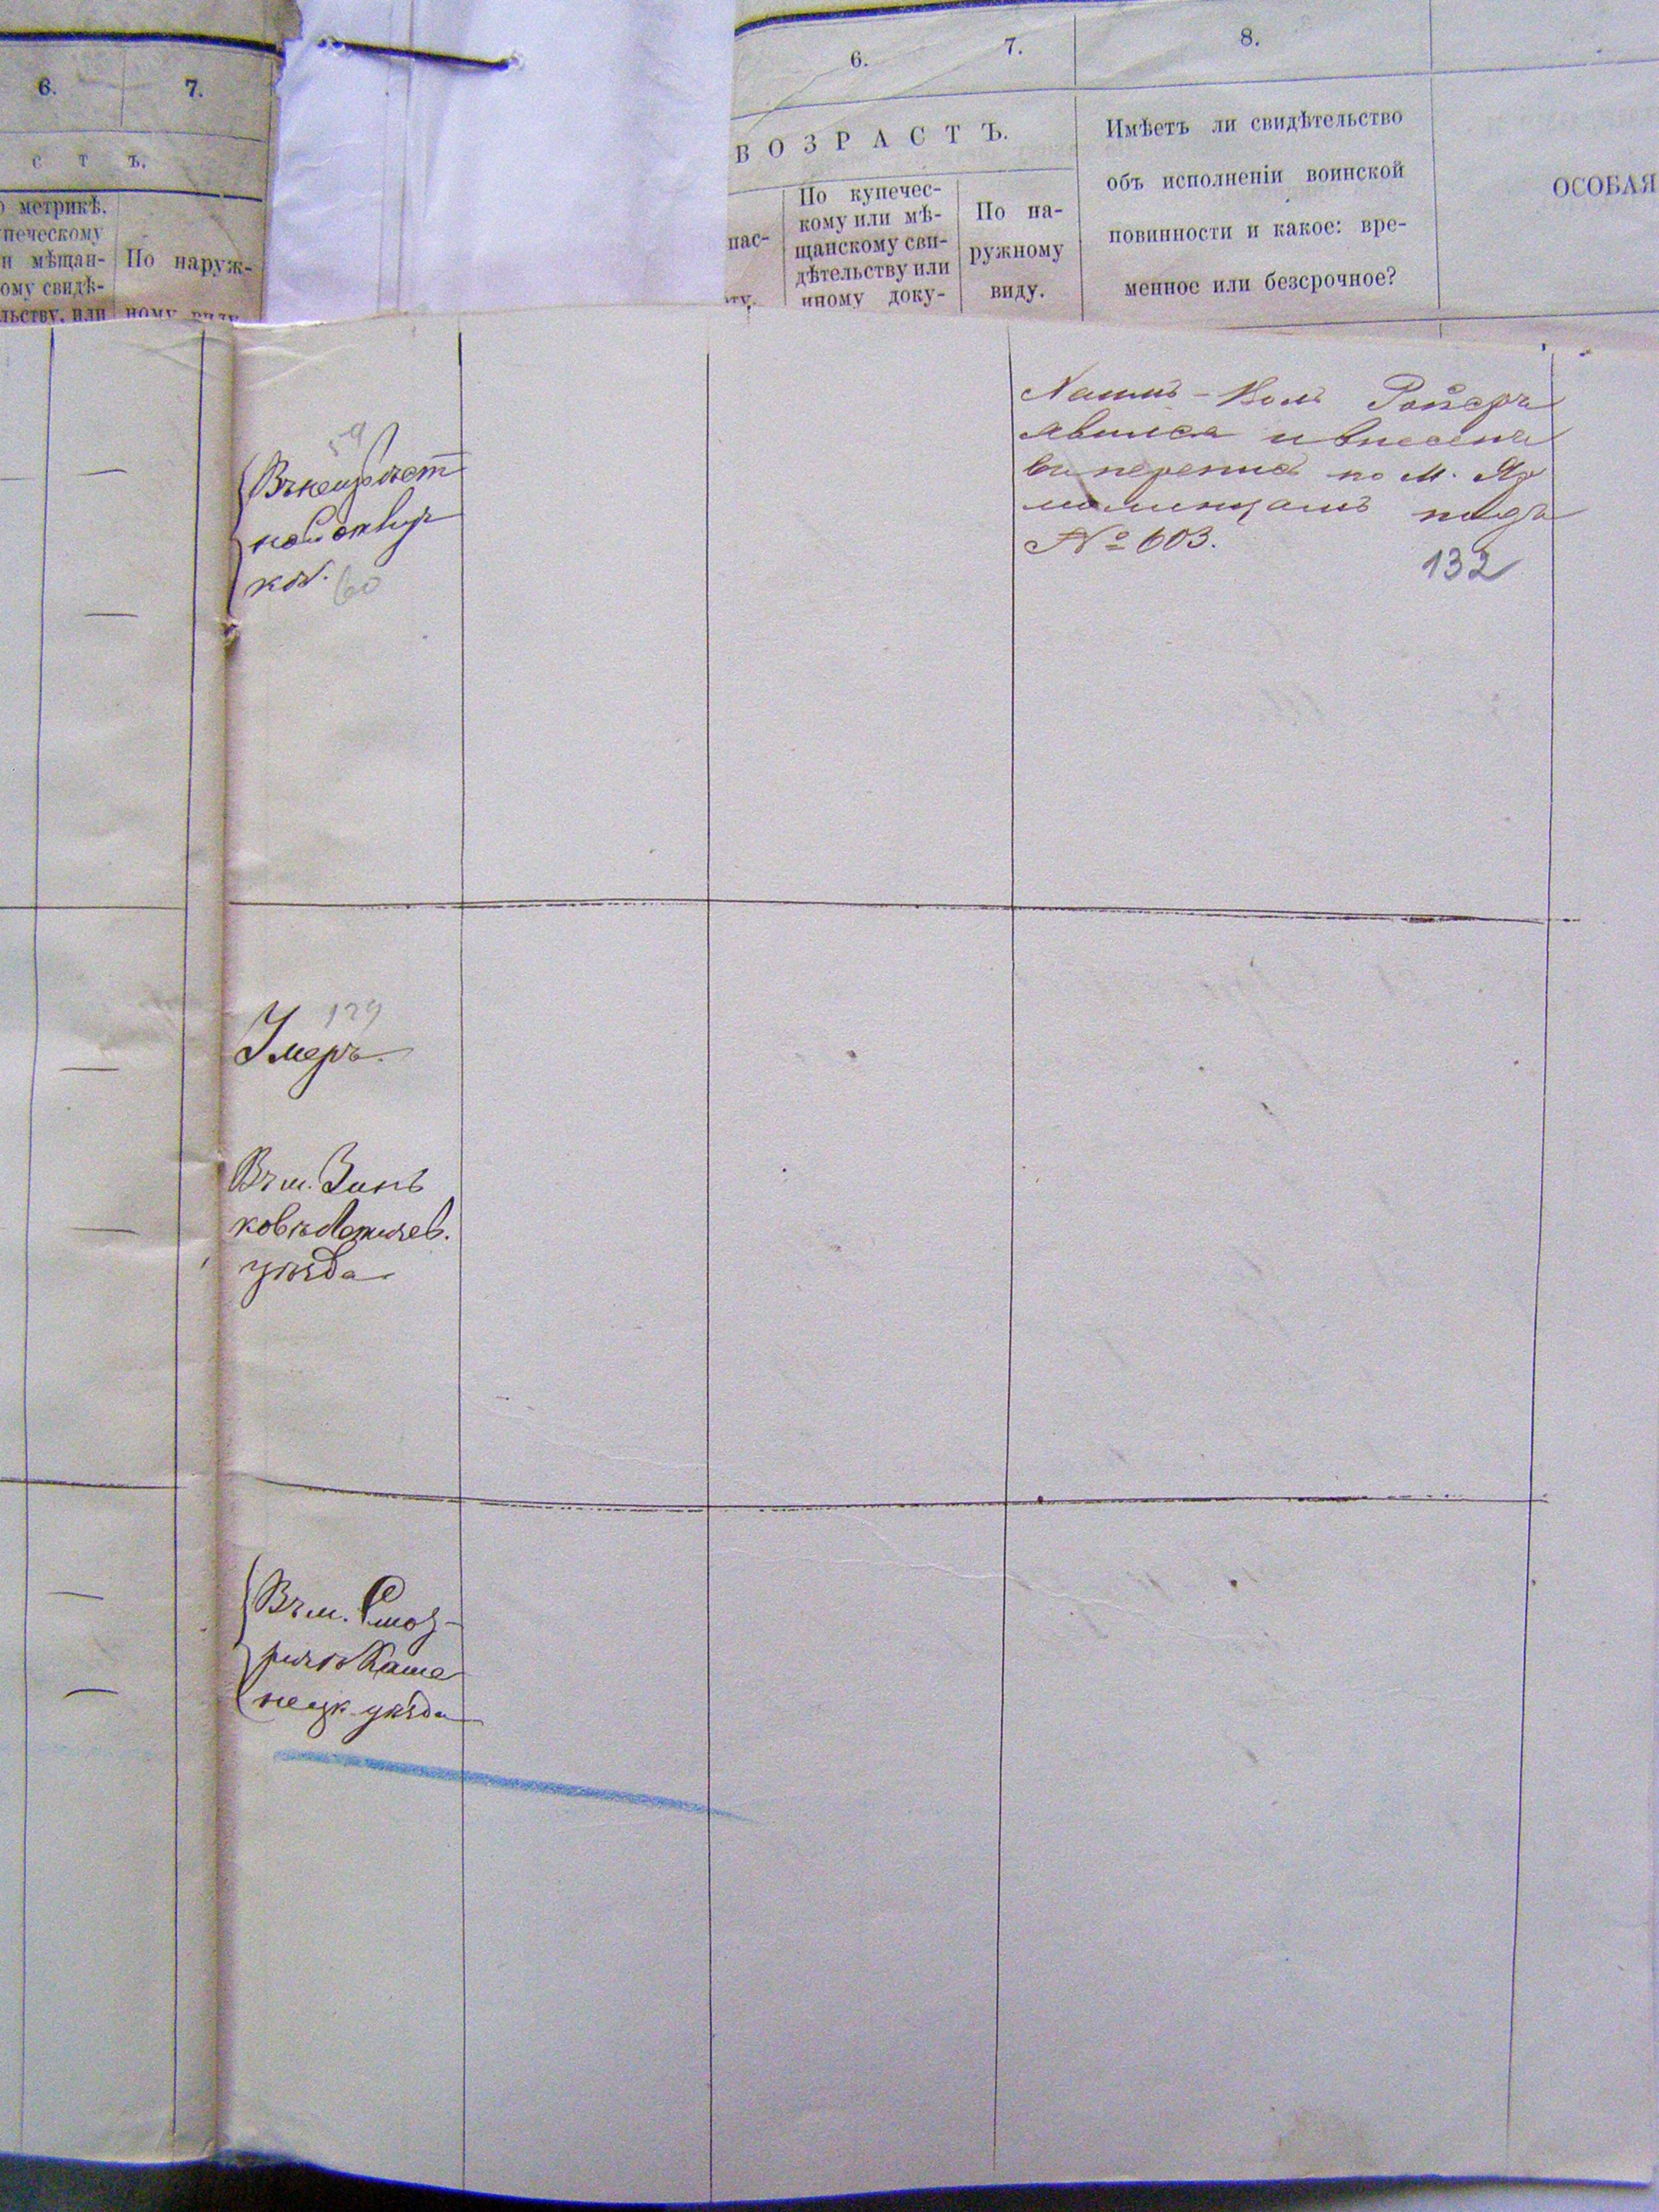 6. 7.
с т ъ.
о метрикѣ,
печескому
и мѣщан-
ому свидѣ-
льству, или
По наруж-
ному виду
6. 7. 8.
ВОЗРАСТЪ.
пас-
ту.
По купечес-
кому или мѣ-
щанскому сви-
дѣтельству или
иному доку-
По на-
ружному
виду.
Имѣетъ ли свидѣтельство
объ исполненіи воинской
повинности и какое: вре-
менное или безсрочное?
ОСОБАЯ
59
ков.
60
явился и внесенъ
въ перепись по м. Яр
молинцамъ подъ
№ 603.
132
129
Умеръ.
Въ м. Зинь
ковѣ Летичев.
уѣзда
Въ м. Смот-
ричѣ Каме
нецк. уѣзда